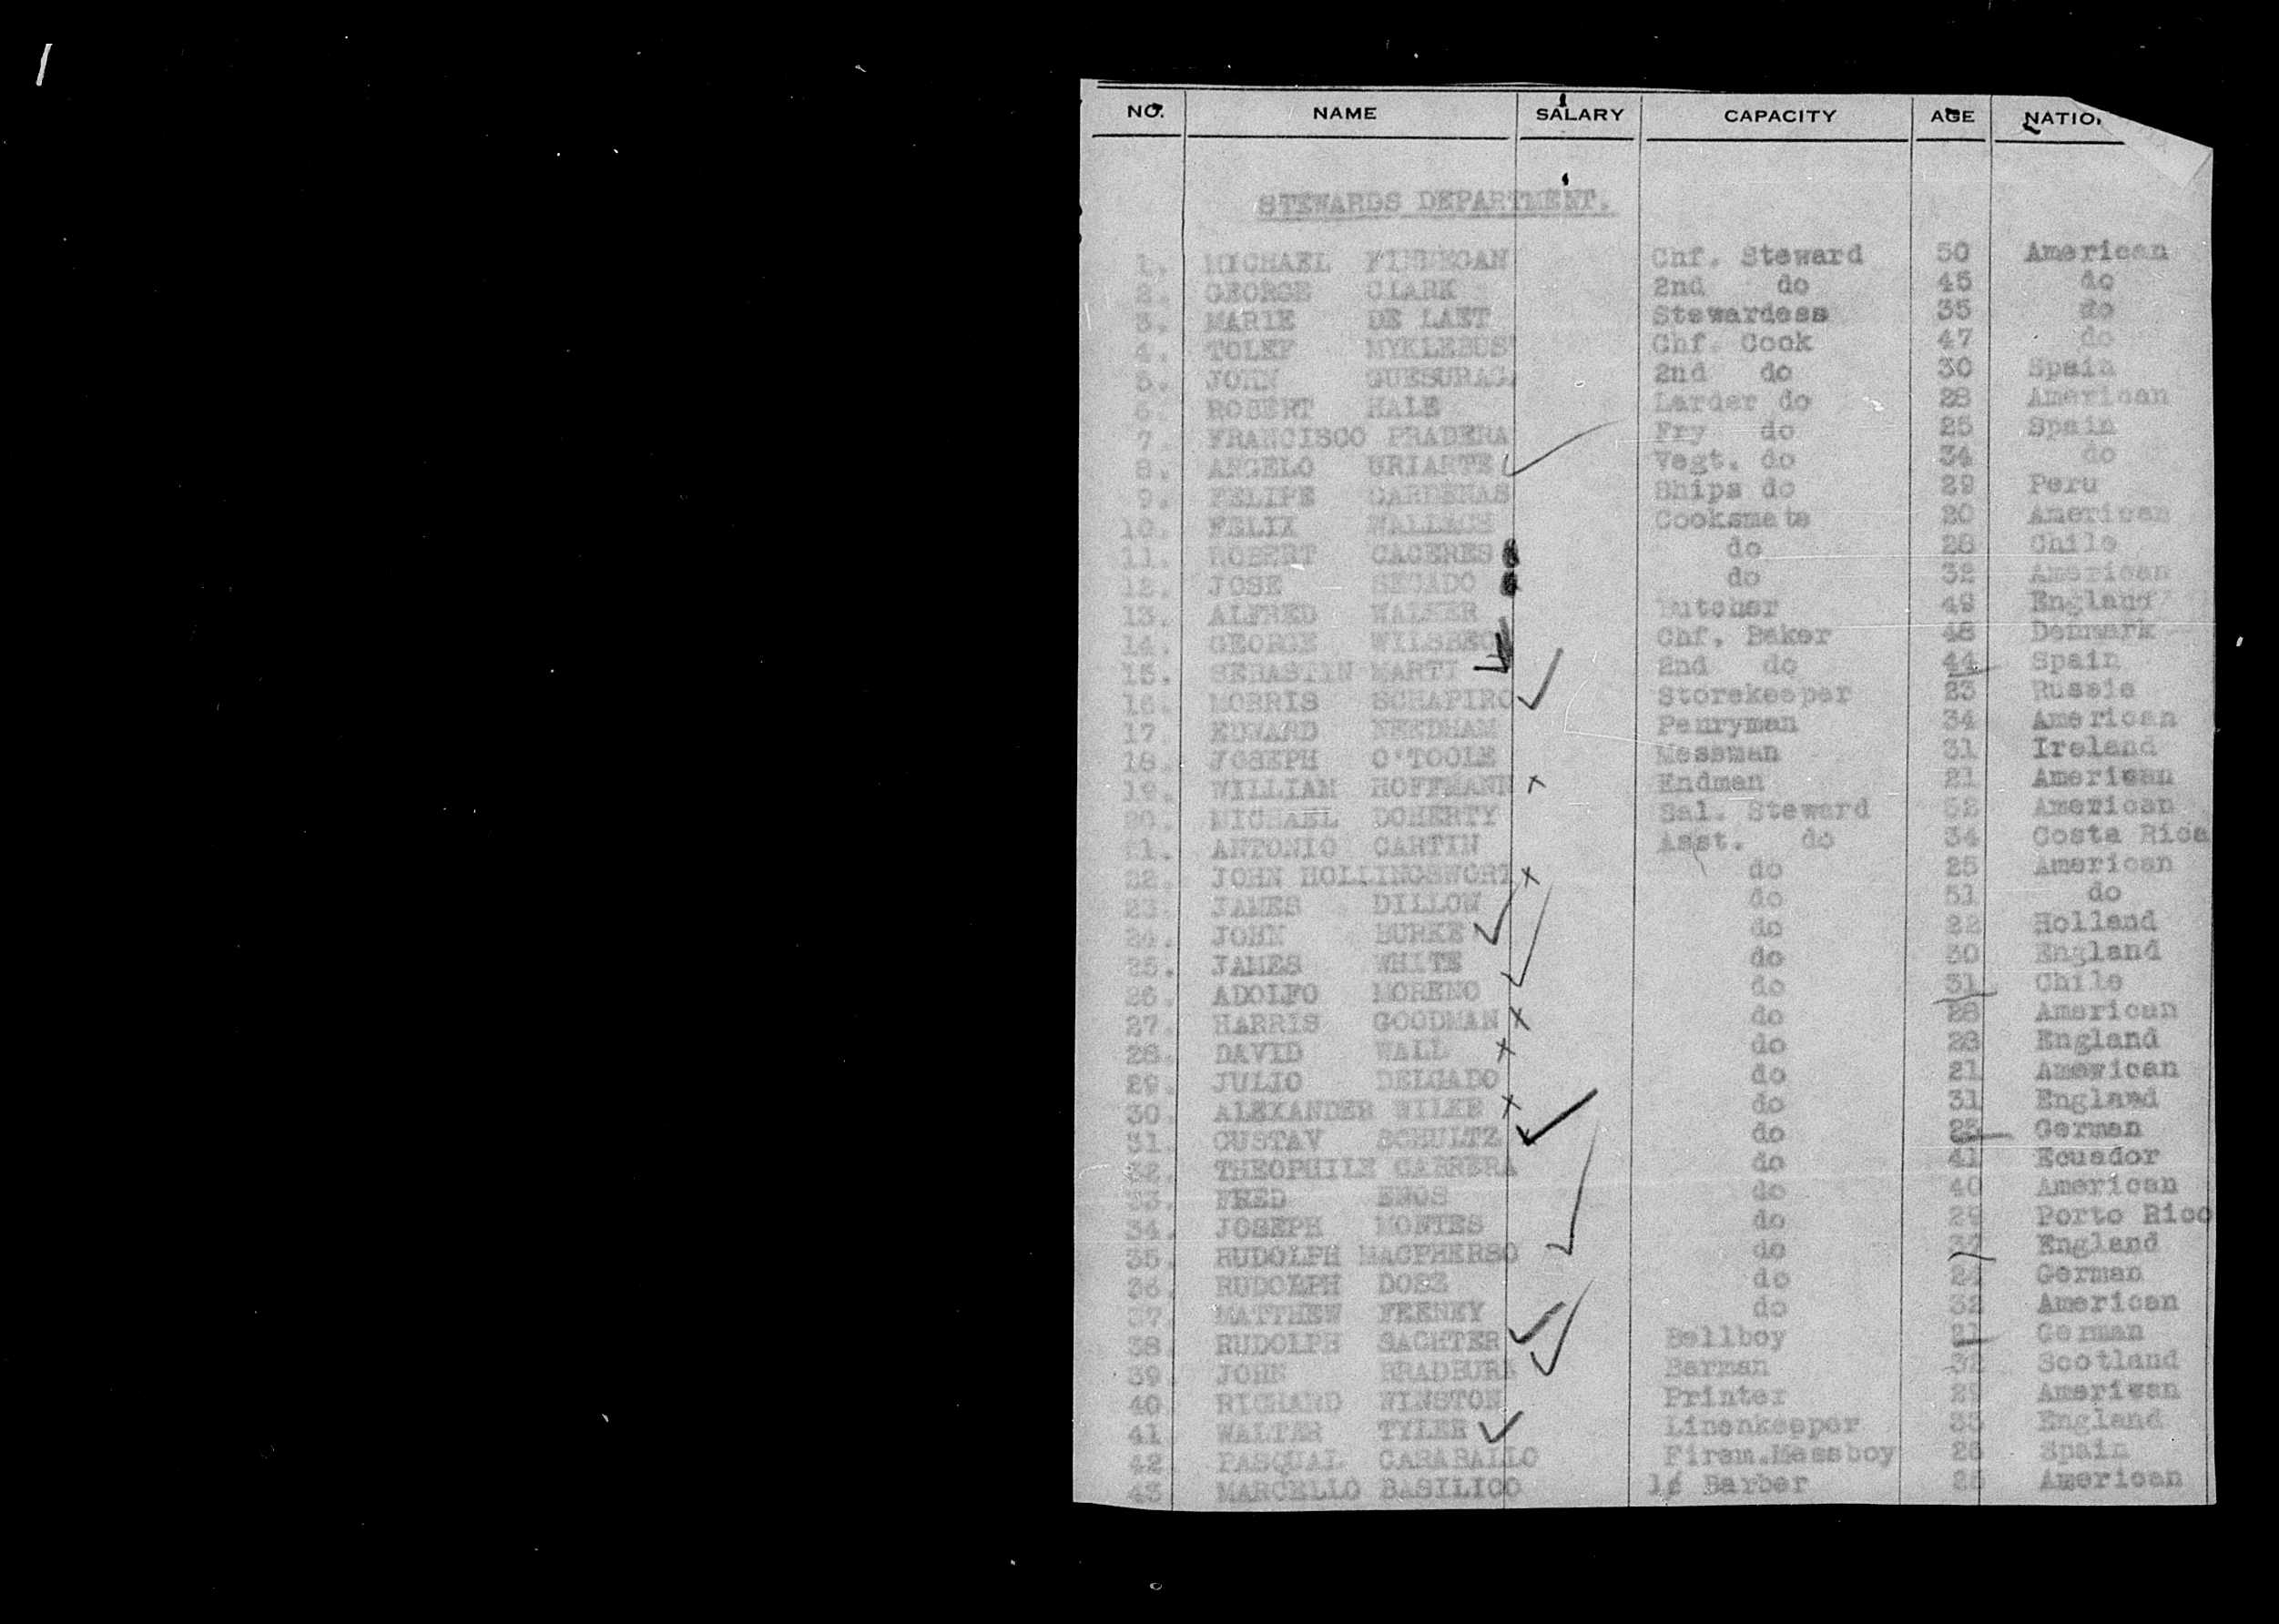 NO. NAME SALARY CAPACITY AGE NATIO
STEWARDS DEPARTMENT.
1. MICHAEL FINNEGAN Chf. Steward 50 American
2. GEORGE CLARK 2nd do 45 do
3. MARIE DE LAET Stewardess 35 do
4. TOLEF MYKLEBUS Chf. Cook 47 do
5. JOHN GUESURAGA 2nd do 30 Spain
6. ROBERT HALE Larder do 28 American
7. FRANCISCO PRADERA Fry do 25 Spain
8. ANGELO URIARTE Vegt. do 34 do
9. FELIPE CARDENAS Ships do 29 Peru
10. FELIX WALLACE Cooksmate 20 American
11. ROBERT CACERES do 28 Chile
12. JOSE SECADO do 32 American
13. ALFRED WALKER Butcher 49 England
14. GEORGE WILSBEC Chf. Baker 48 Denmark
15. SEBASTIN MARTI 2nd do 44 Spain
16. MORRIS SCHAPIRO Storekeeper 23 Russia
17. EDWARD NEEDHAM Penryman 34 American
18. JOSEPH O'TOOLE Messman 31 Ireland
19. WILLIAM HOFFMANN Endman 21 American
20. MICHAEL DOHERTY Sal. Steward 52 American
21. ANTONIO CARTIN Asst. do 34 Costa Rica
22. JOHN HOLLINGSWORT do 25 American
23. JAMES DILLOW do 51 do
24. JOHN BURKE do 22 Holland
25. JAMES WHITE do 30 England
26. ADOLFO MORENO do 31 Chile
27. HARRIS GOODMAN do 28 American
28. DAVID WALL do 28 England
29. JULIO DELGADO do 21 American
30. ALEXANDER WILKE do 31 England
31. GUSTAV SCHULTZ do 25 German
32. THEOPHILE CABRERA do 41 Ecuador
33. FRED ENOS do 40 American
34. JOSEPH MONTES do 29 Porto Rico
35. RUDOLPH MACPHERSO do 37 England
36. RUDOLPH DOSZ do 24 German
37. MATTHEW FEENEY do 32 American
38. RUDOLPH SACHTER Bellboy 21 German
39. JOHN BRADBURN Barman 32 Scotland
40. RICHARD WINSTON Printer 29 American
41. WALTER TYLER Linenkeeper 35 England
42. PASQUAL CARABALLO Firem.Messboy 26 Spain
43. MARCELLO BASILICO 1¢ Barber 25 American